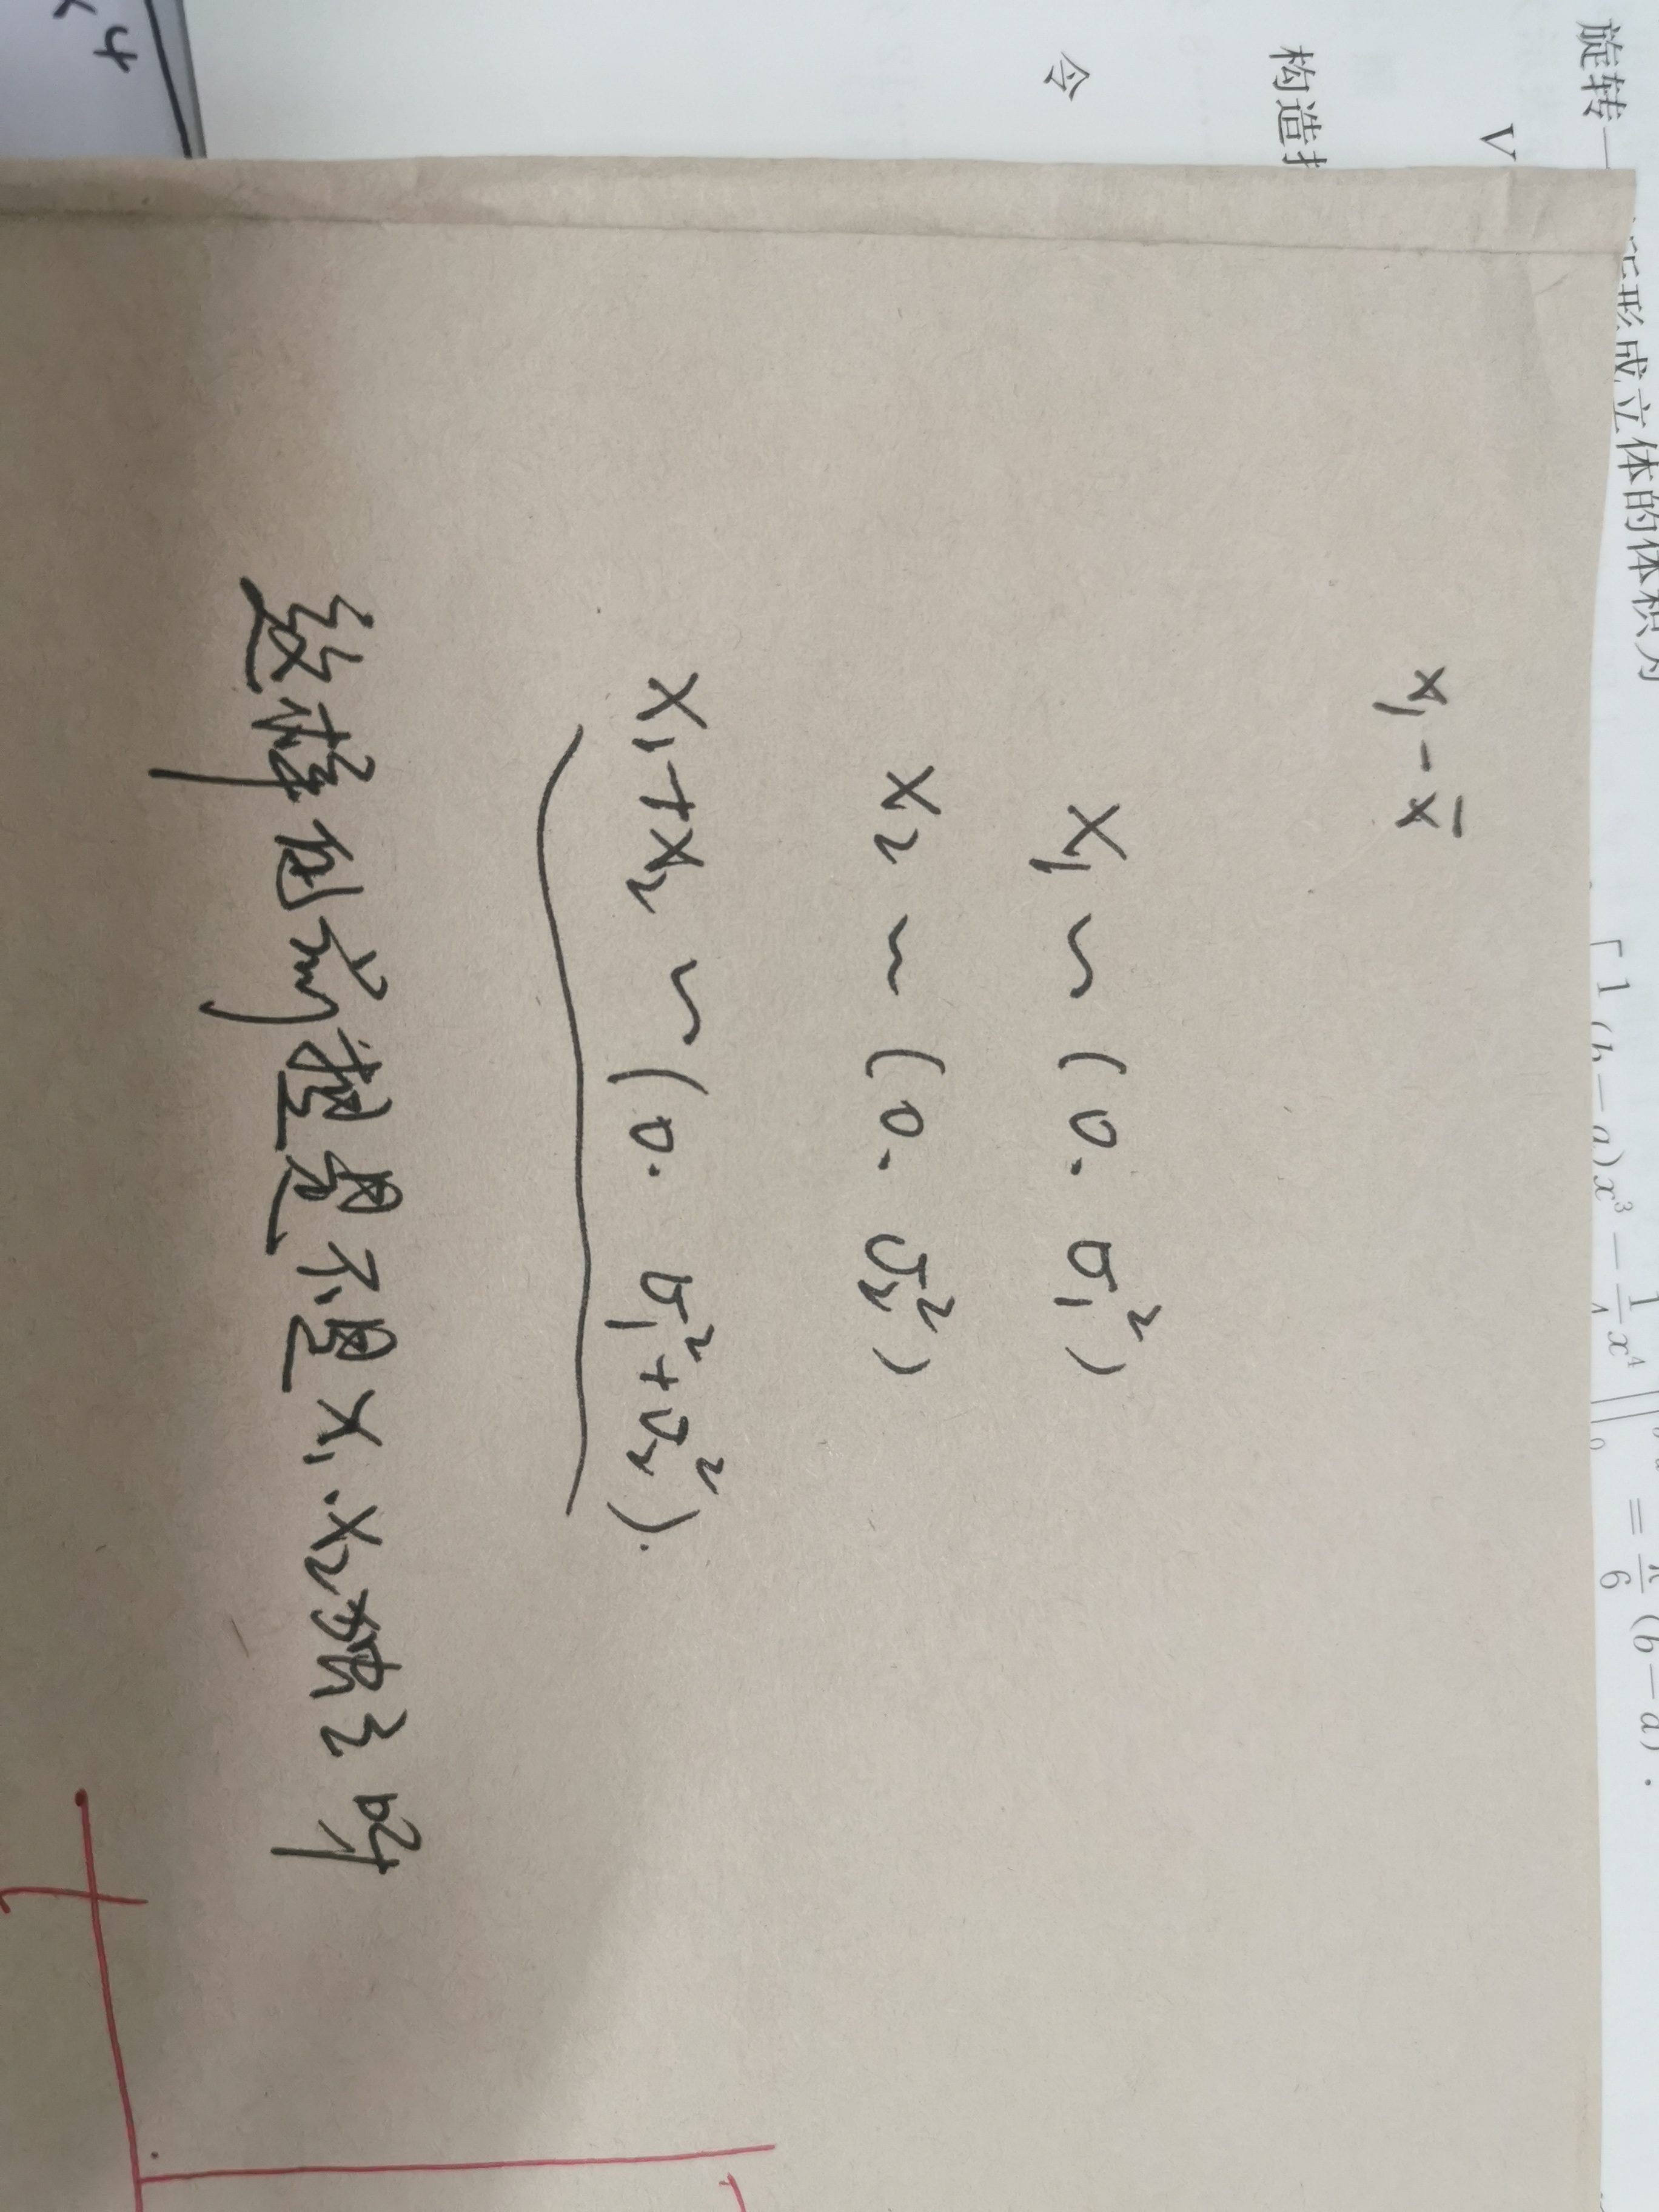 旋转一
所形成立体的体积为
V
[1(b-a)x³-1/4x⁴]
=π/6(b-a).
构造
令
x₁-x̄
X₁~(0.σ₁²)
X₂~(0.σ₂²)
X₁+X₂~(0.σ₁²+σ₂²).
这样的前提是不是X₁.X₂独立呀